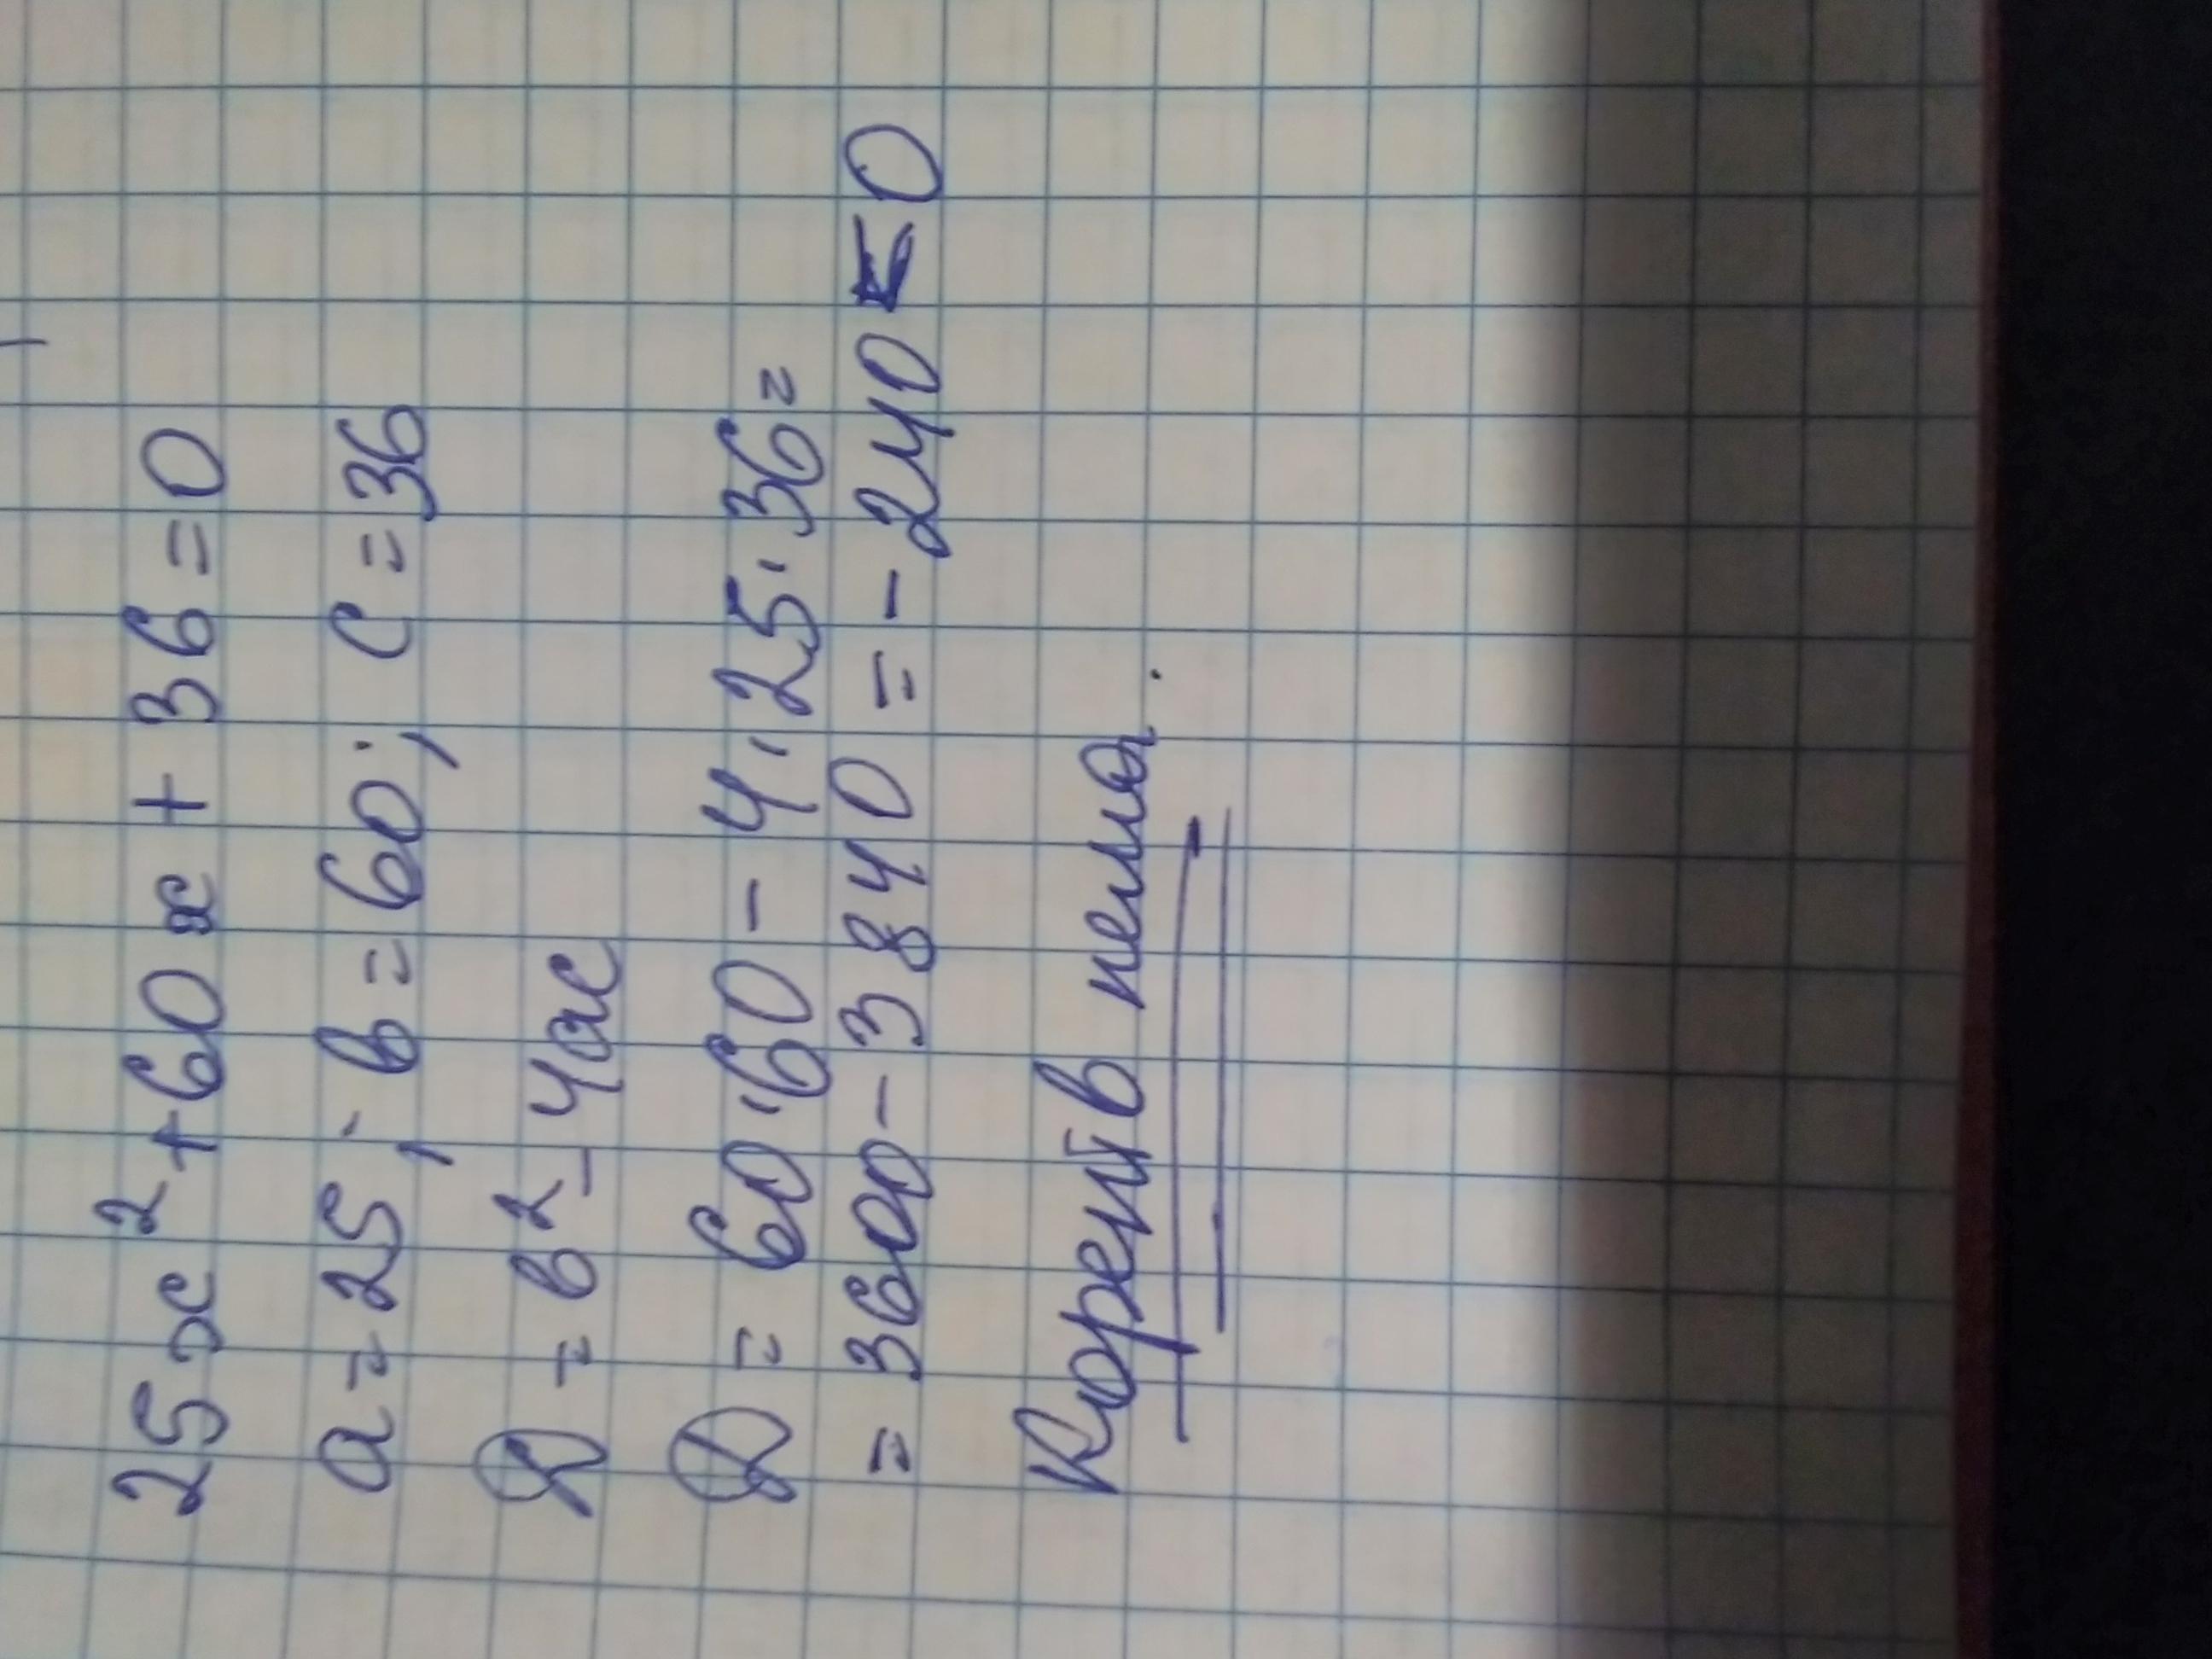 25x² + 60x + 36 = 0
a = 25; в = 60; c = 36
D = в² - 4ac
D = 60·60 - 4·25·36=
= 3600 - 3840 = -240 < 0
Коренів нема.